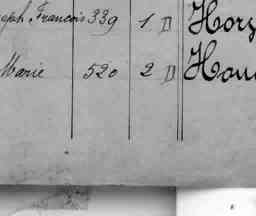 eph, Francois 339 1 D Horz
Marie 520 2 D Hou